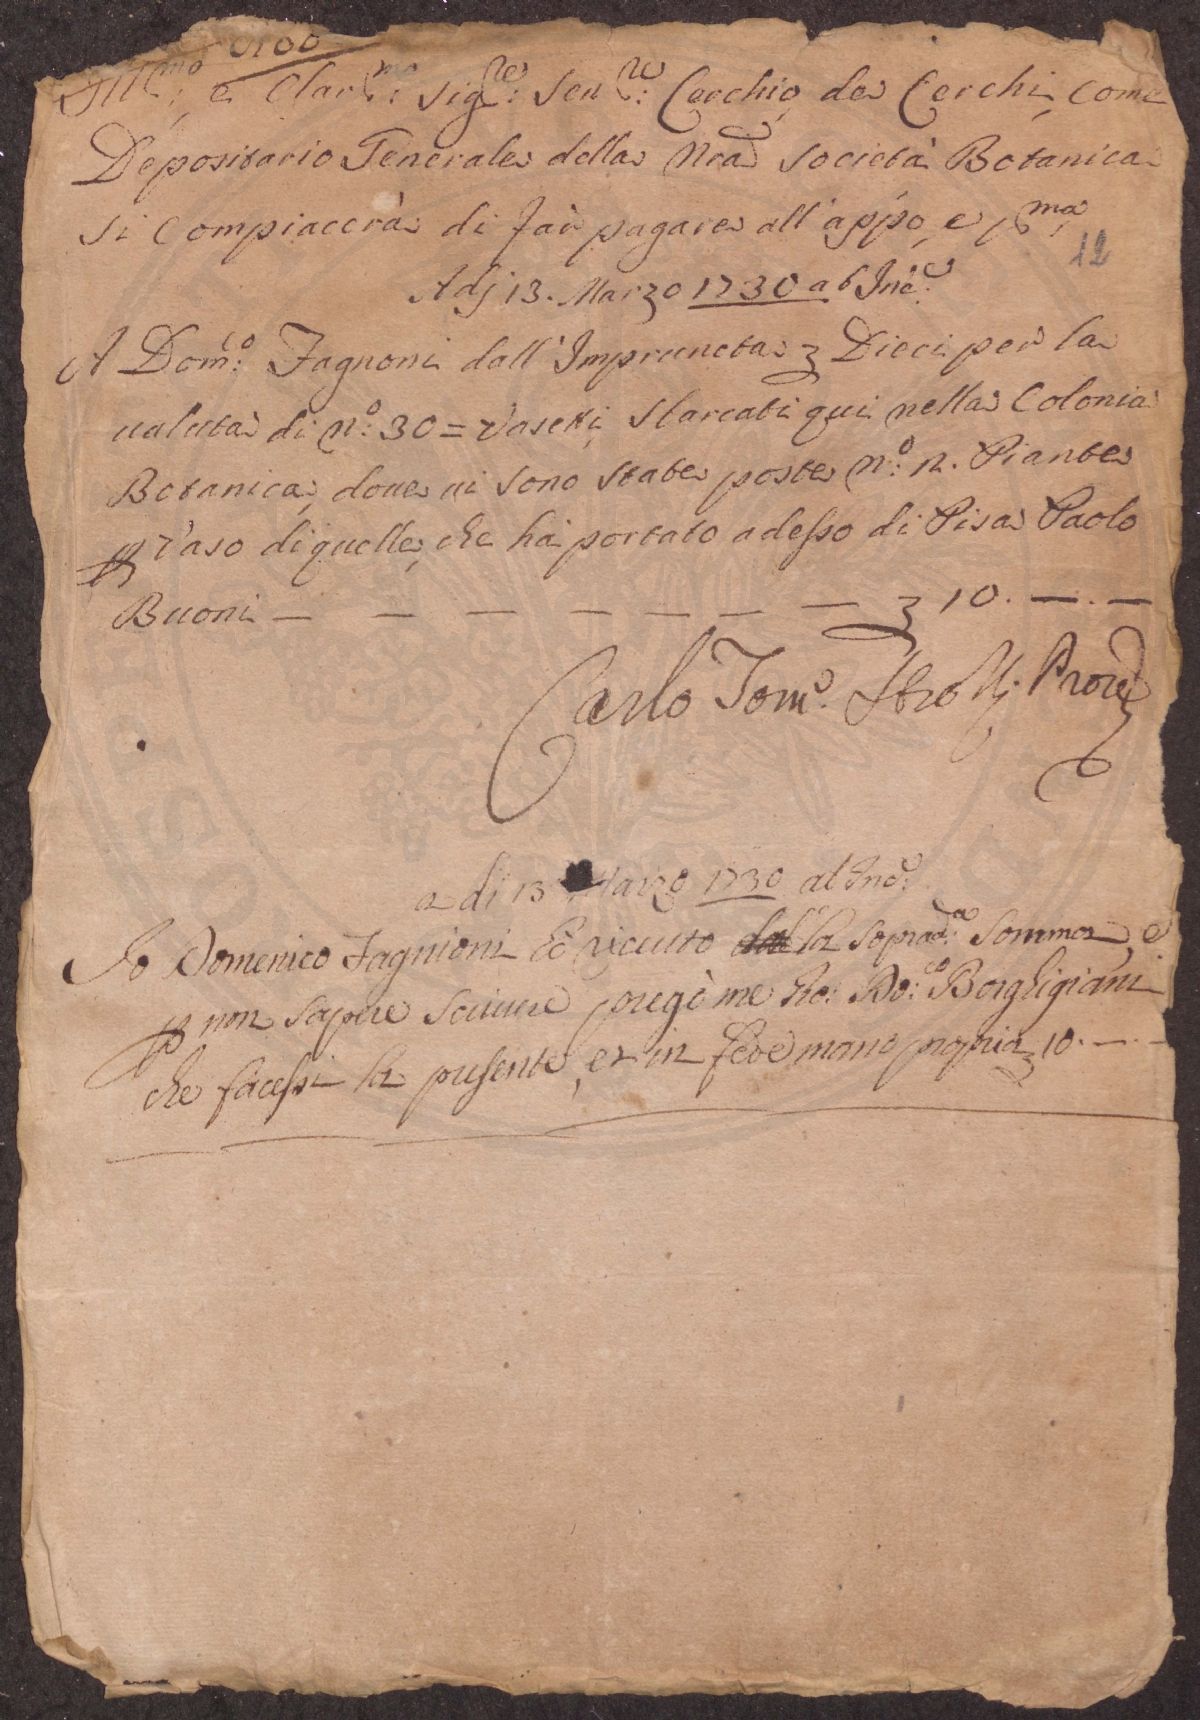 Ill.mo e Clar.mo Sig.re Sen.re Cerchio de Cerchi, come
Depositario Generale della Nra Società Botanica
si compiacerà di far pagare all'appo, e
12
Adj 13. Marzo 1730 ab Inc.e
A Dom.co Fagnoni dall'Impruneta Dieci per la
valuta di n.o 30 = Vasetti, sbarcati qui nella Colonia
Botanica, dove vi sono state poste n.o n. Piante
Vaso di quelle, che hà portato adesso di Pisa Paolo
Buoni — — — — — — — 10. —.—
Carlo Tom.o Strozzi Prove
a di 13 Marzo 1730 al Inc.e
Io Domenico Fagnioni Hò riceuto la soprad.a somma e
non sapere scrivere pregò me Borghigiani
che facessi la presente, et in fede mano propria 10. —.—